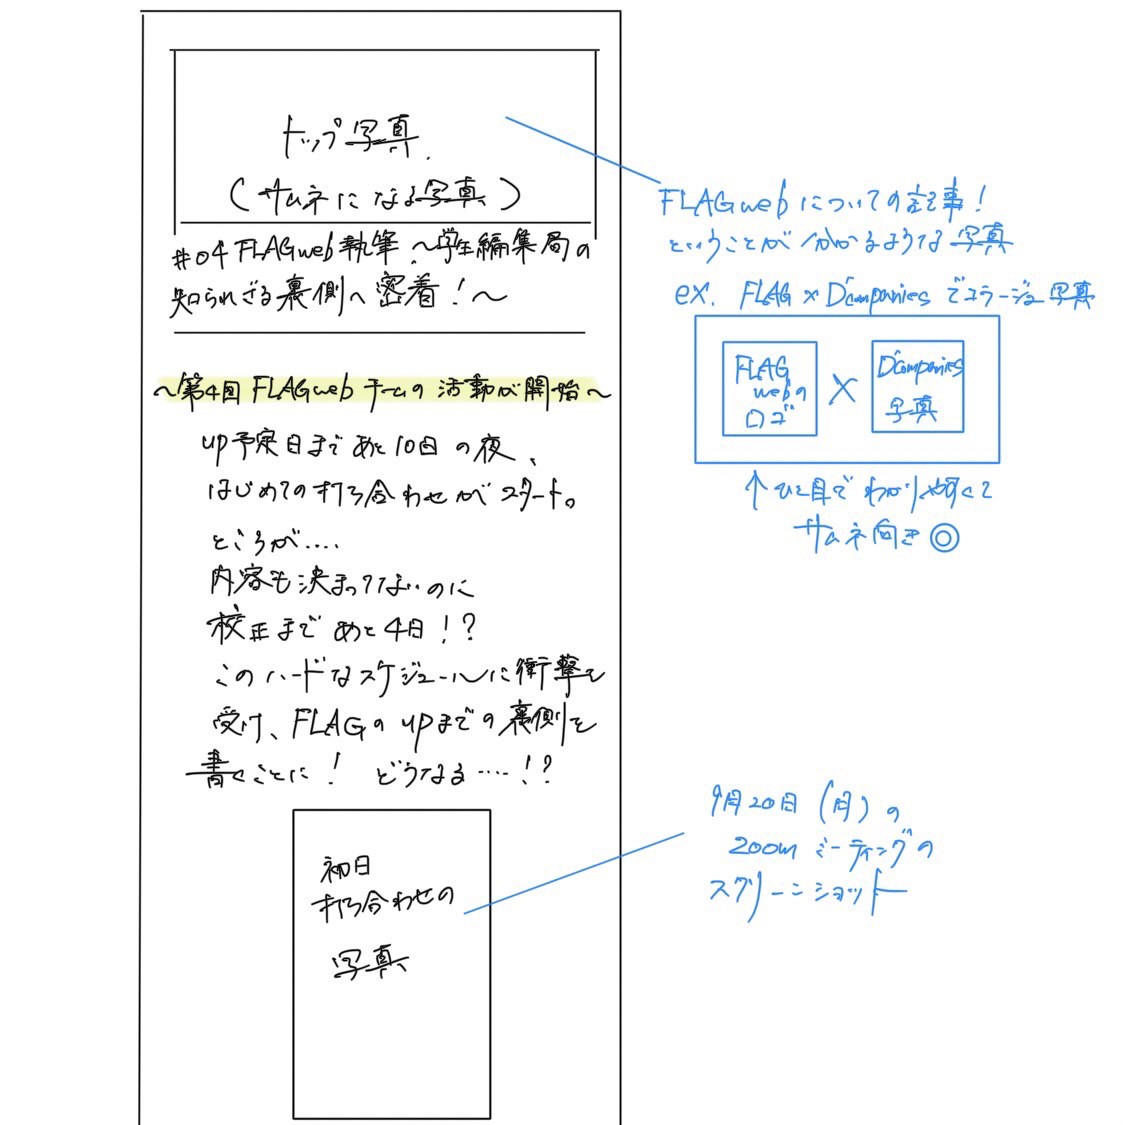 トップ写真.
(サムネになる写真)
#04 FLAGweb執筆 〜学生編集局の
知られざる裏側へ密着！〜
〜第4回 FLAGwebチームの活動が開始〜
up予定日まであと10日の夜、
はじめての打ち合わせがスタート。
ところが....
内容も決まってないのに
校正まであと4日！？
このハードなスケジュールに衝撃を
受け、FLAGのupまでの裏側を
書くことに！ どうなる....！？
初日
打ち合わせの
写真
FLAGwebについての記事！
ということが分かるような写真
ex. FLAG×D'companiesでコラージュ写真
FLAG
webの
ロゴ
×
D'companies
写真
↑ひと目でわかりやすくて
サムネ向き◎
9月20日(月)の
zoomミーティングの
スクリーンショット